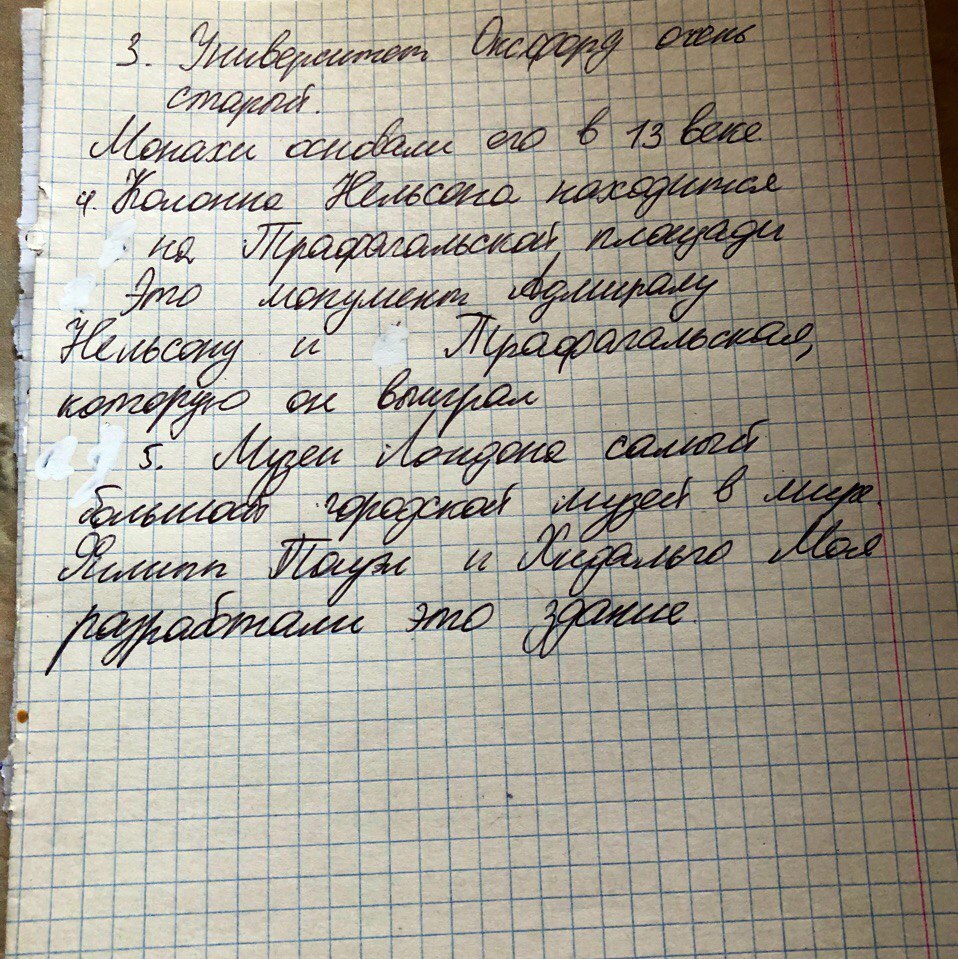 3. Университет Оксфорд очень
старый.
Монахи основали его в 13 веке
4. Колонна Нельсона находится
на Трафагальской площади
Это монумент Адмиралу
Нельсону и Трафагальская,
которую он выиграл
5. Музеи Лондона самый
большой городской музей в мире.
Филипп Пауэл и Хидальго Моя
разработали это здание.